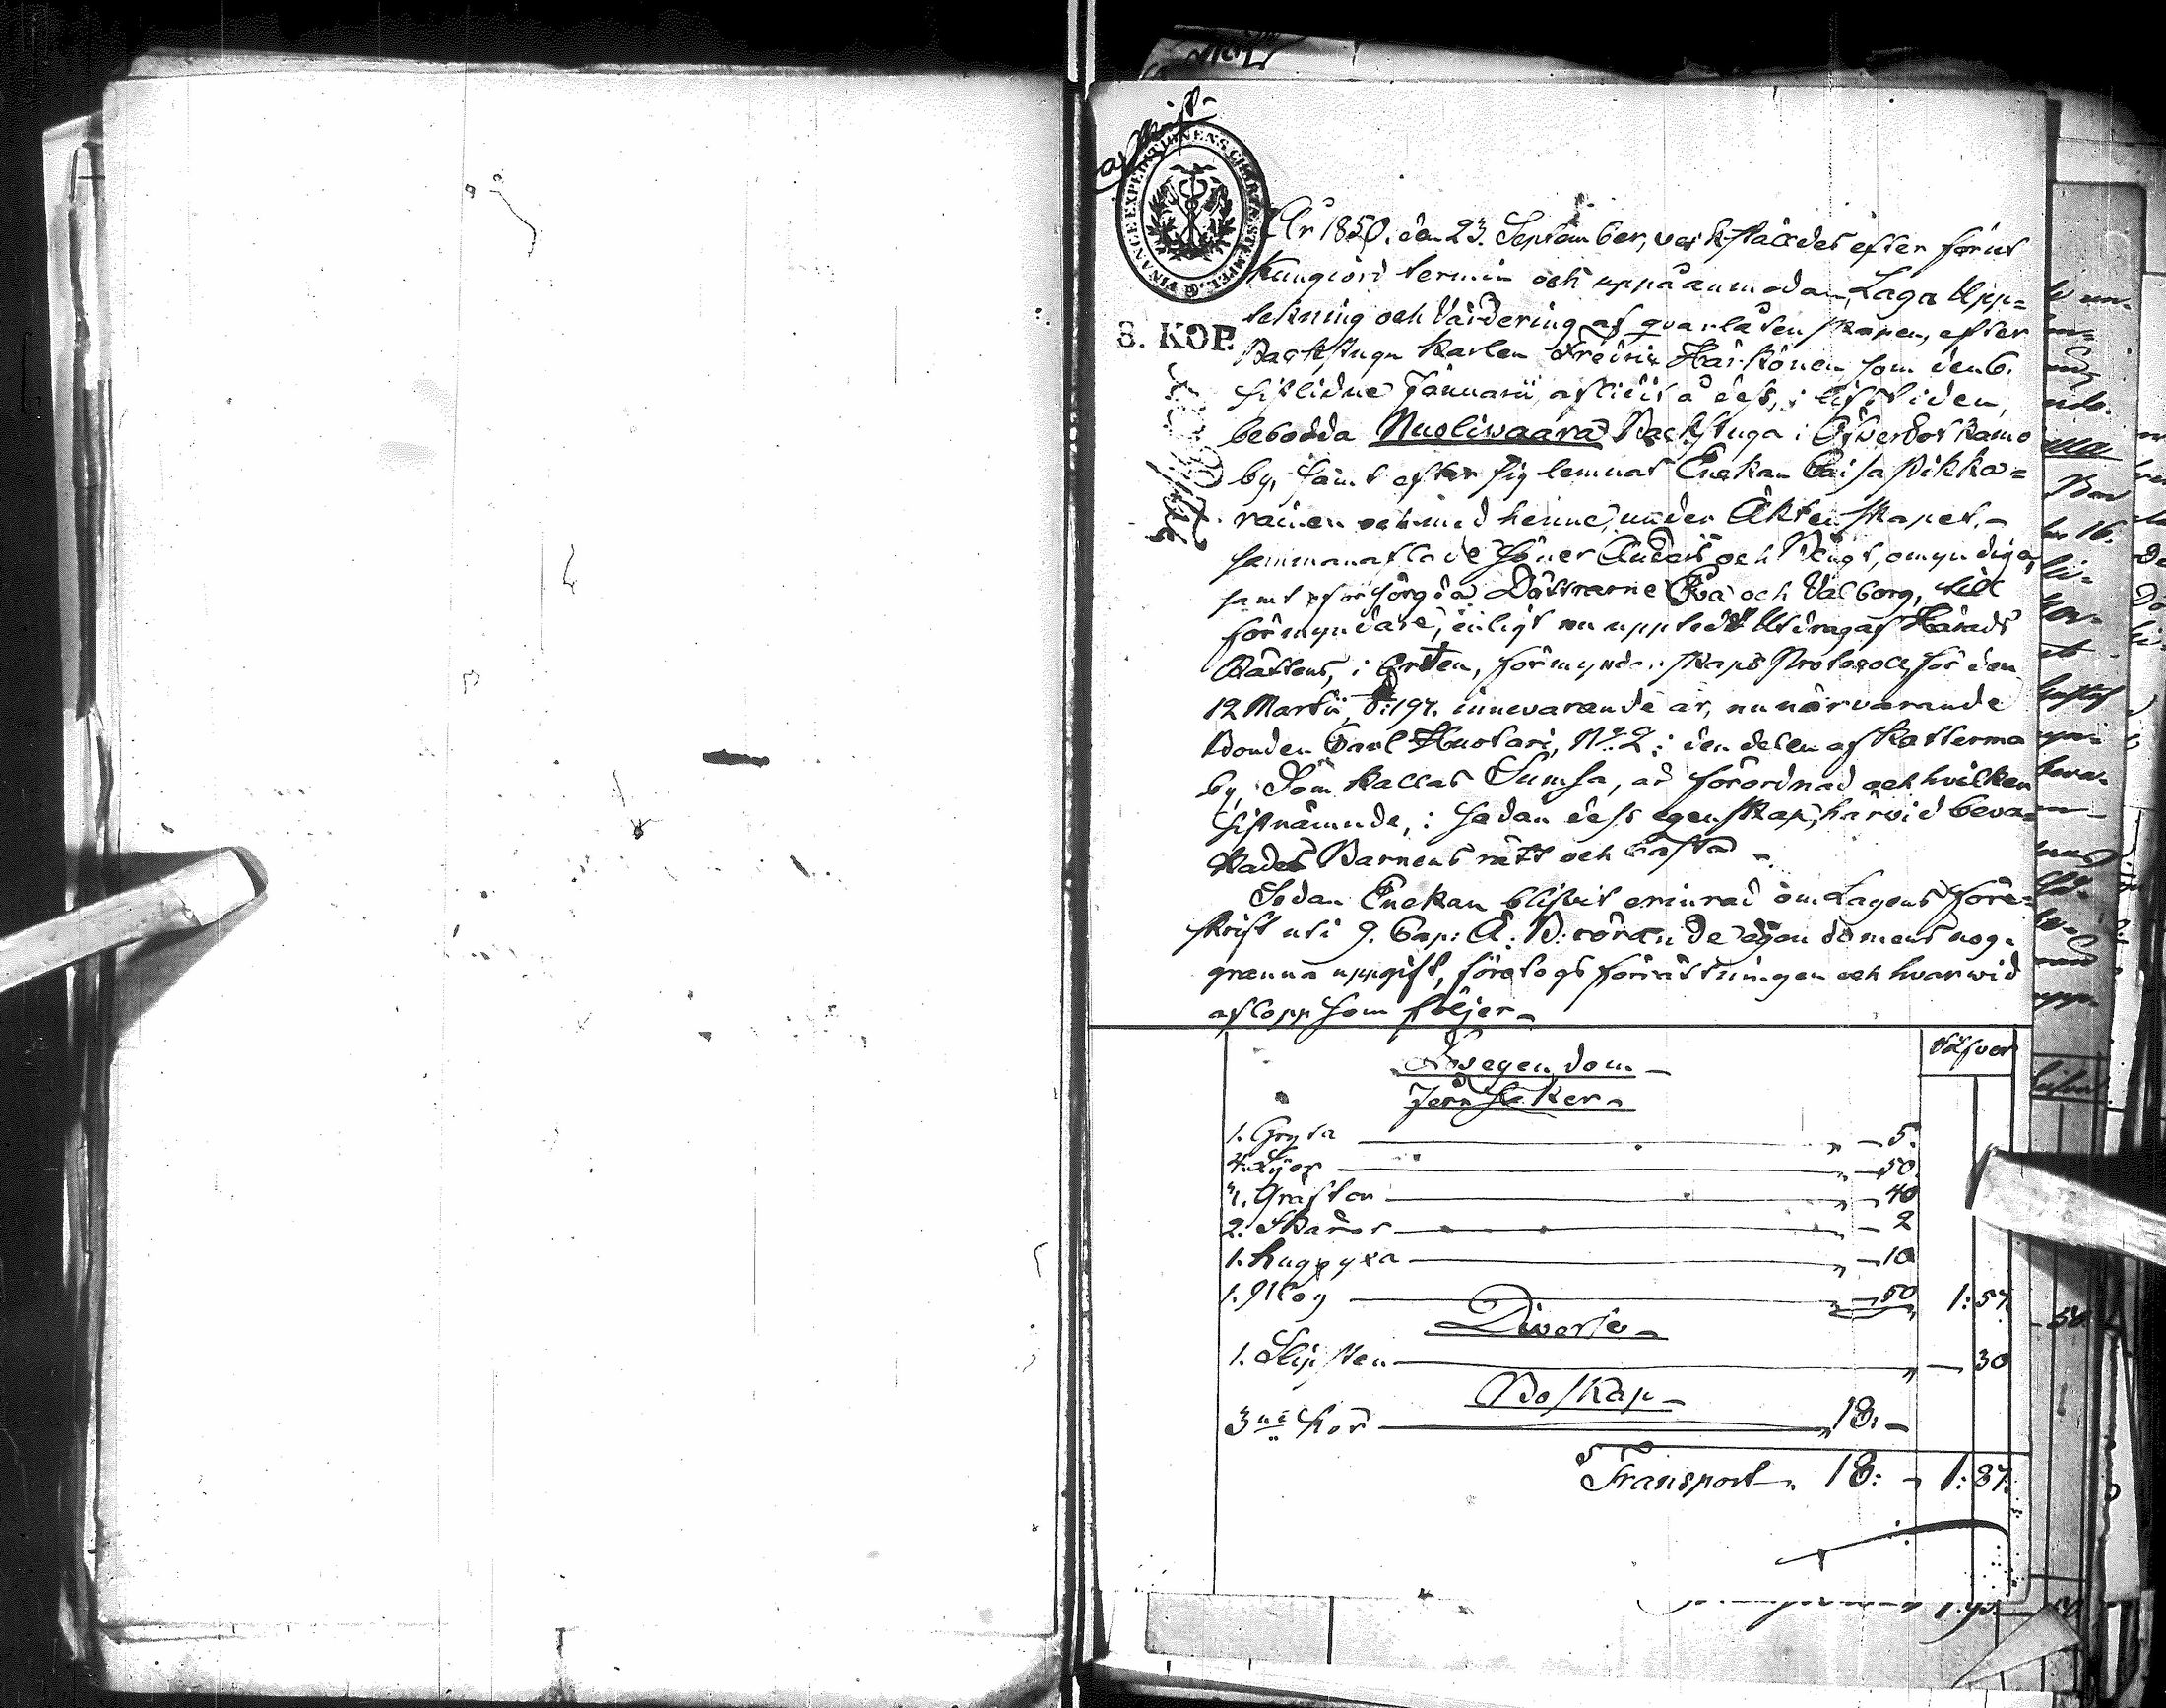 Afskrift
FINANCE EXPEDITIONENS CHARTÆ STEMPEL
8. KOP.
År 1850. den 23. September, verkställdes efter förut
kungiord termin och uppå anmodan, Laga Upp=
tekning och Värdering af qvarlåtenskapen, efter
Backstugu karlen Fredric Härkönen, som den 6.
sistlidne Januarii aflidit å dess, i lifstiden,
bebodda Nuolivaara Backstuga i
by, samt efter sig lemnat Enekan Caisa Pikka=
rainen och med henne, under Äktenskapet,
sammanaflade Söner Anders och Bengt, omyndiga,
samt försörgda Döttrarne Eva och Valborg, till
förmyndare, enligt nu uppted Utdrag af Härads
Rättens, i Orten, förmynderskaps Protocoll för den
12 Martii, §: 197. innevarande år, nu närvarande
Bonden Carl Huotari, No. 2 i den delen af Katterma
by, Som kallas Sumsa, är förordnad och hvilken
sistnämnde, i sådan dess egenskap, härvid beva=
kade Barnens rätt och bästa.
Sedan Enekan blifvit erinrad om Lagens före=
skrift uti 9. Cap: Ä: B: rörande egendomens nog=
granna uppgift, företogs förrättningen och hvarvid
aflopp som följer
Silfver
Lösegendom
Jern Saker
1. Gryta 5.
4. Lijor 50.
4. Gräftor 40
2. Skäror 2
1. hugg yxa 10
1. Plog 50 1: 57.
Diverse
1. Slipsten 30
Boskap
3ne Kor 18. –
Transport 18: – 1: 87.